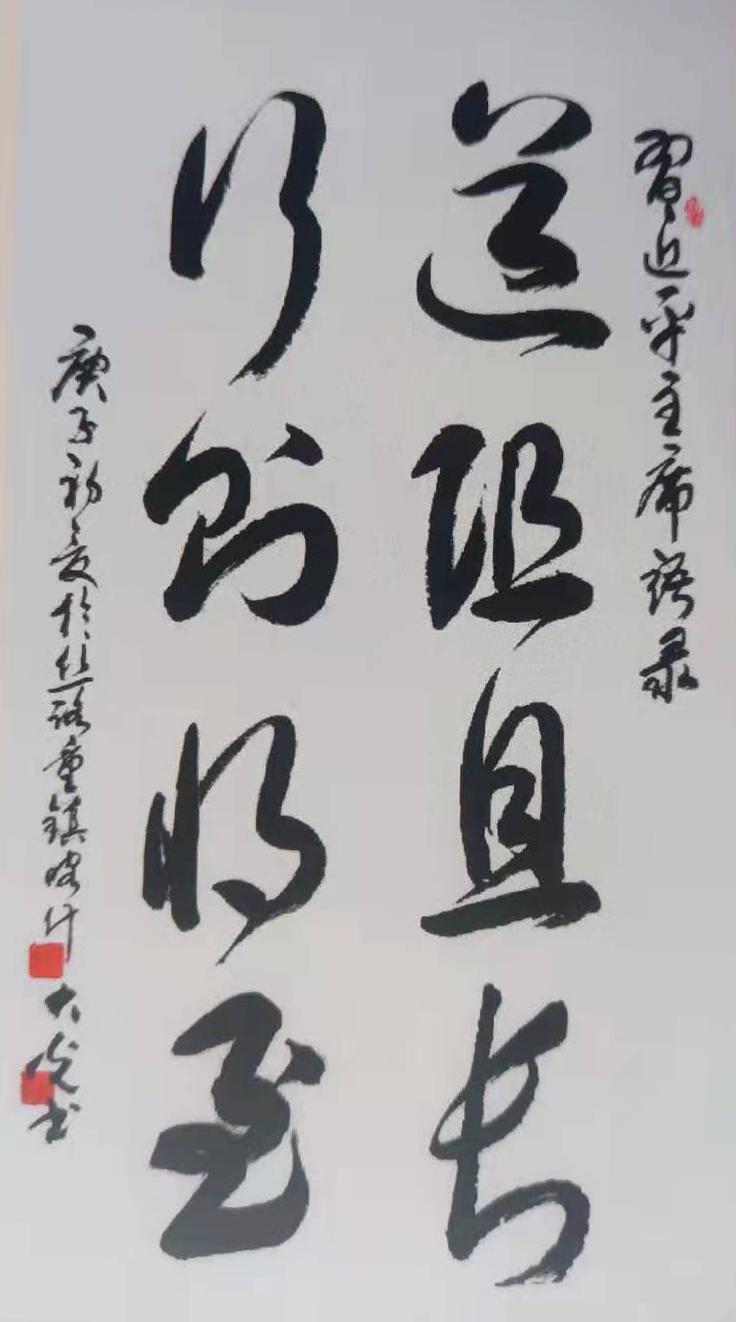 習近平主席語录
道阻且长
行則将至
庚子初夏於丝路重鎮喀什
大光书